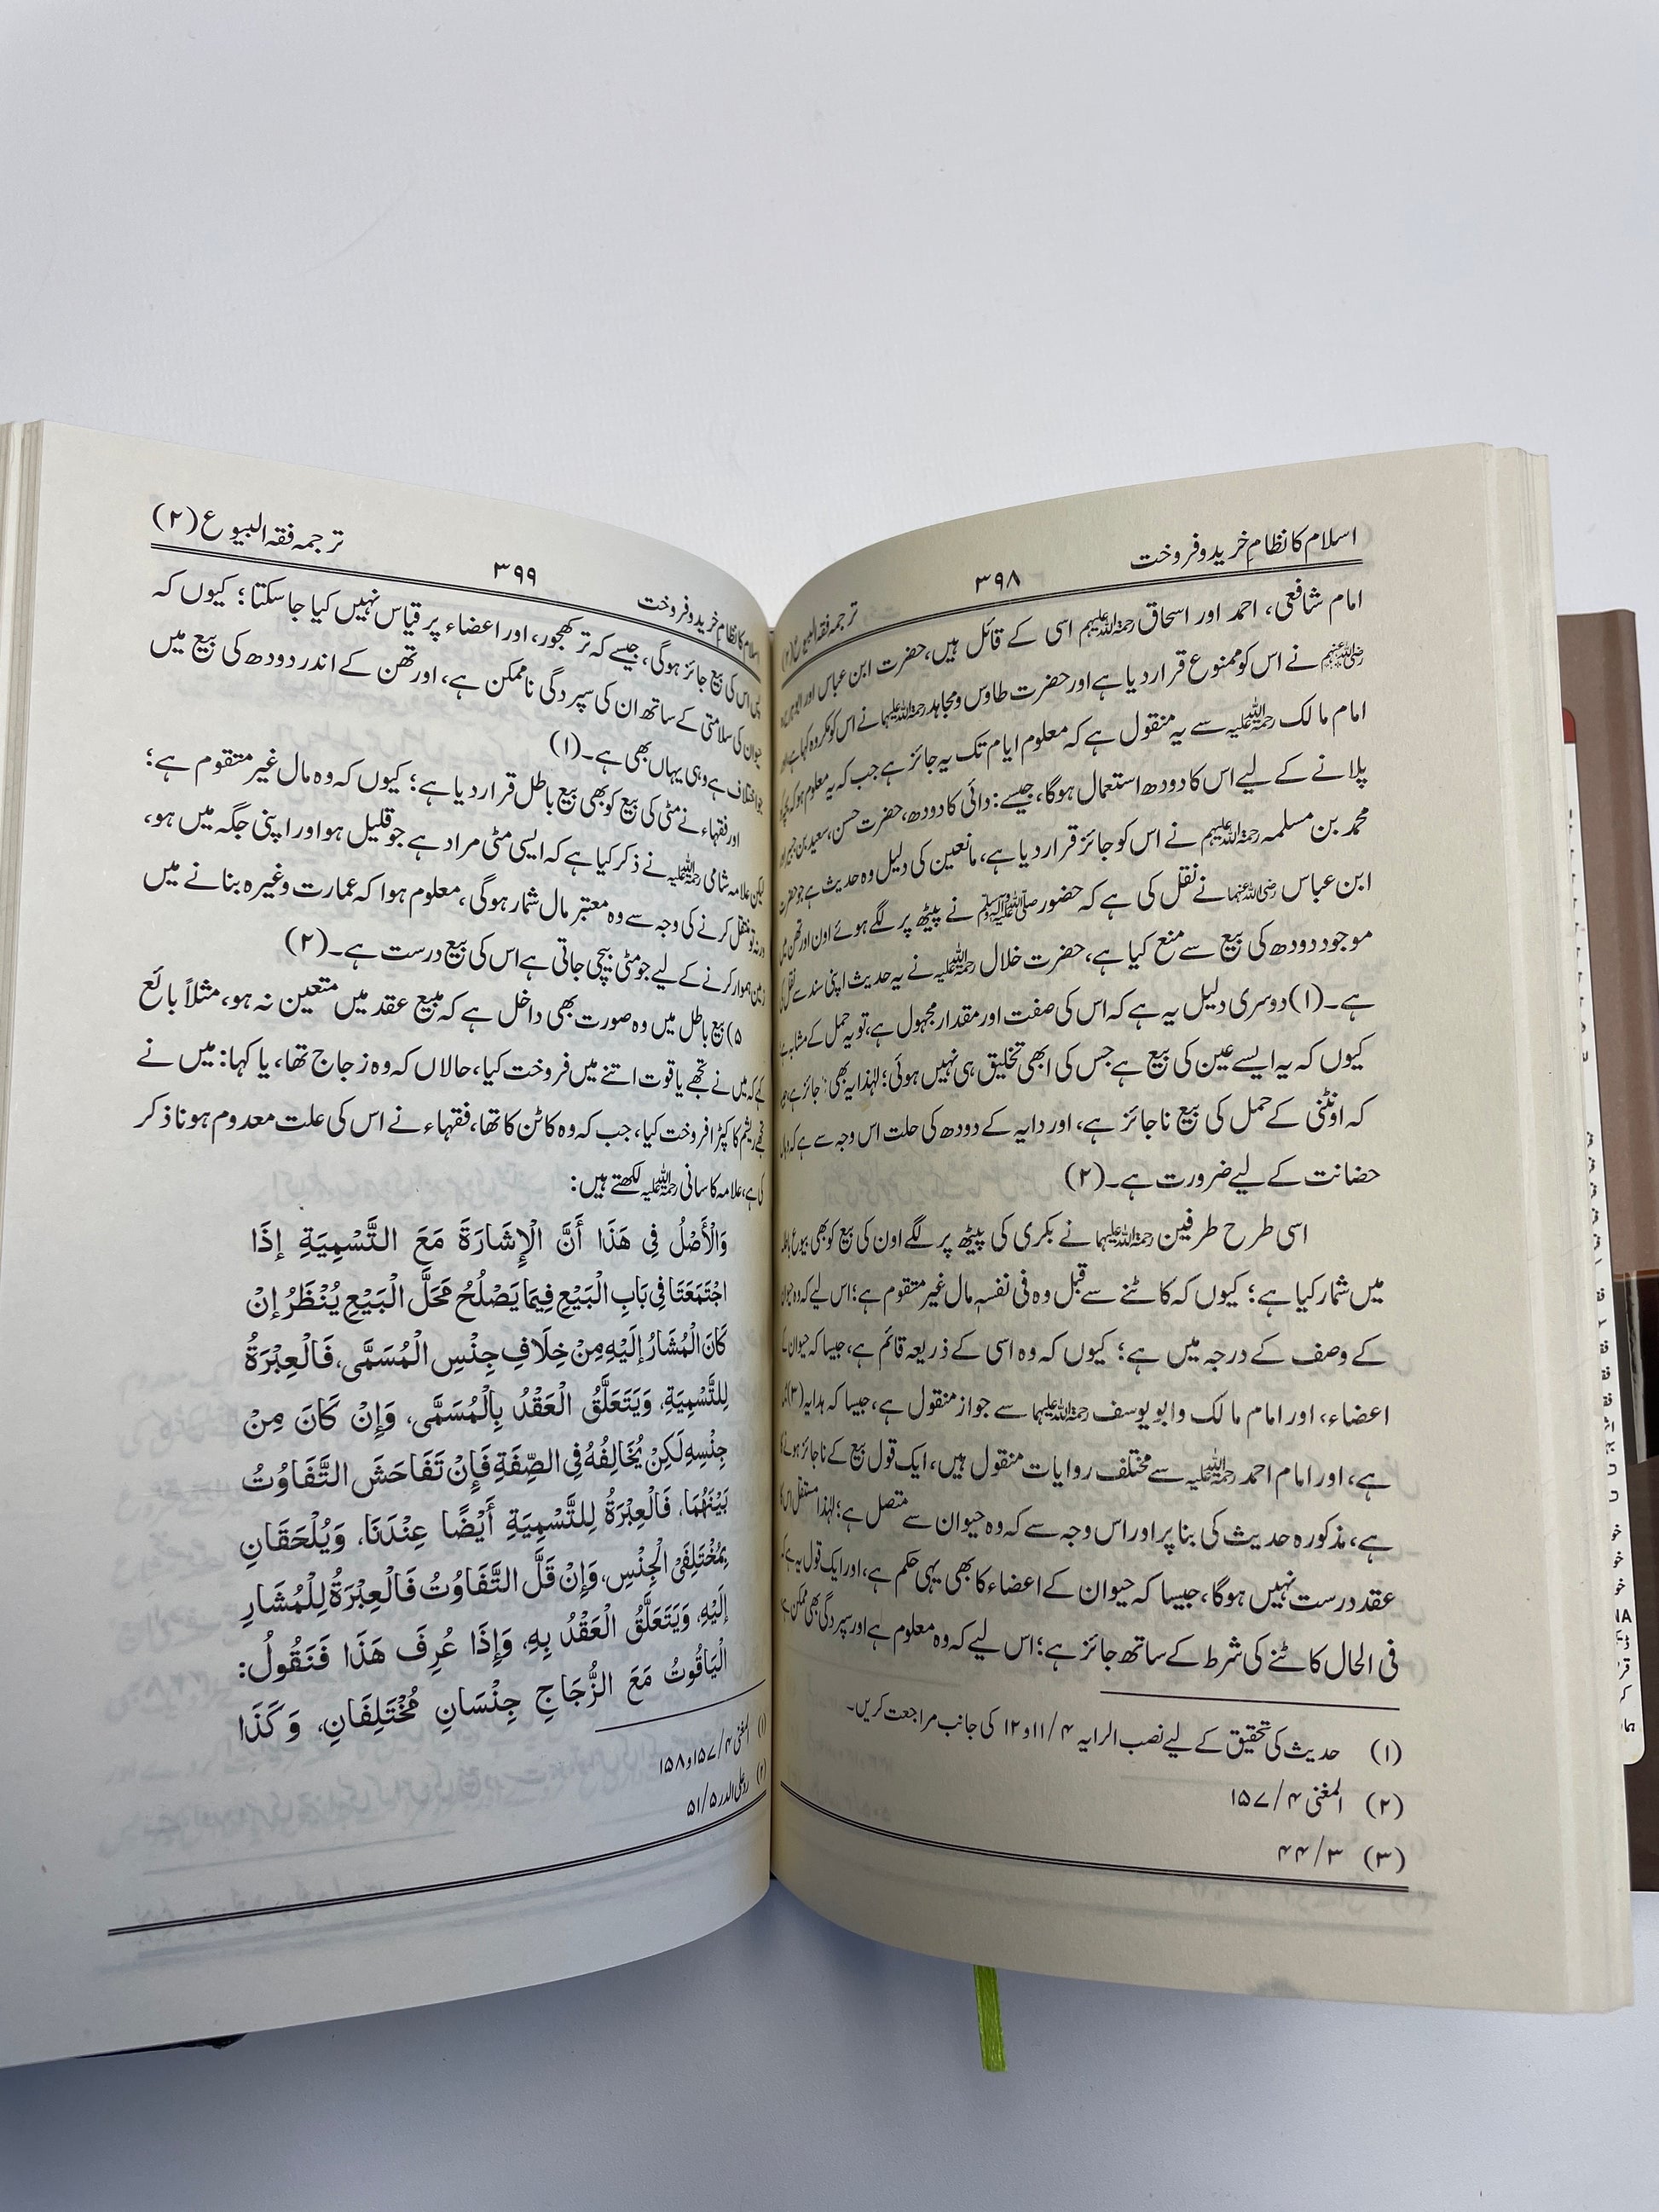 اسلام کا نظامِ خرید و فروخت
۳۹۸
ترجمہ فقہ البیوع (۲)
امام شافعی، احمد اور اسحاق رحمۃ اللہ علیہم اسی کے قائل ہیں، حضرت ابن عباس اور
رضی اللہ عنہم نے اس کو ممنوع قرار دیا ہے اور حضرت طاوس و مجاہد رحمۃ اللہ علیہما نے اس کو مکروہ کہا ہے، اور
امام مالک رحمۃ اللہ علیہ سے یہ منقول ہے کہ معلوم ایام تک یہ جائز ہے جب کہ یہ معلوم ہو کہ
پلانے کے لیے اس کا دودھ استعمال ہوگا، جیسے: دائی کا دودھ، حضرت حسن، سعید بن جبیر اور
محمد بن مسلمہ رحمۃ اللہ علیہم نے اس کو جائز قرار دیا ہے، مانعین کی دلیل وہ حدیث ہے جو حضرت
ابن عباس رضی اللہ عنہما نے نقل کی ہے کہ حضور صلی اللہ علیہ وسلم نے پیٹھ پر لگے ہوئے اون اور تھن میں
موجود دودھ کی بیع سے منع کیا ہے، حضرت خلال رحمۃ اللہ علیہ نے یہ حدیث اپنی سند سے نقل کی
ہے۔(۱) دوسری دلیل یہ ہے کہ اس کی صفت اور مقدار مجہول ہے، تو یہ حمل کے مشابہ ہے
کیوں کہ یہ ایسے عین کی بیع ہے جس کی ابھی تخلیق ہی نہیں ہوئی؛ لہٰذا یہ بھی جائز ہے،
کہ اونٹنی کے حمل کی بیع ناجائز ہے، اور دایہ کے دودھ کی حلت اس وجہ سے ہے کہ وہاں
حضانت کے لیے ضرورت ہے۔(۲)
اسی طرح طرفین رحمۃ اللہ علیہما نے بکری کی پیٹھ پر لگے اون کی بیع کو بھی بیوع
میں شمار کیا ہے؛ کیوں کہ کاٹنے سے قبل وہ فی نفسہٖ مال غیر متقوم ہے؛ اس لیے کہ وہ حیوان
کے وصف کے درجہ میں ہے؛ کیوں کہ وہ اسی کے ذریعہ قائم ہے، جیسا کہ حیوان کے
اعضاء، اور امام مالک وابو یوسف رحمۃ اللہ علیہما سے جواز منقول ہے، جیسا کہ ہدایہ (۳)
ہے، اور امام احمد رحمۃ اللہ علیہ سے مختلف روایات منقول ہیں، ایک قول بیع کے ناجائز ہونے کا
ہے، مذکورہ حدیث کی بنا پر اور اس وجہ سے کہ وہ حیوان سے متصل ہے؛ لہٰذا مستقل اس کا
عقد درست نہیں ہوگا، جیسا کہ حیوان کے اعضاء کا بھی یہی حکم ہے، اور ایک قول یہ ہے کہ
فی الحال کاٹنے کی شرط کے ساتھ جائز ہے؛ اس لیے کہ وہ معلوم ہے اور سپردگی بھی ممکن ہے
(۱) حدیث کی تحقیق کے لیے نصب الرایہ ۴/۱۱و۱۲ کی جانب مراجعت کریں۔
(۲) المغنی ۴/۱۵۷
(۳) ۳/۴۴
اسلام کا نظامِ خرید و فروخت
۳۹۹
ترجمہ فقہ البیوع (۲)
ہی اس کی بیع جائز ہوگی، جیسے کہ تر کھجور، اور اعضاء پر قیاس نہیں کیا جاسکتا؛ کیوں کہ
حیوان کی سلامتی کے ساتھ ان کی سپردگی ناممکن ہے، اور تھن کے اندر دودھ کی بیع میں
جو اختلاف ہے وہی یہاں بھی ہے۔(۱)
اور فقہاء نے مٹی کی بیع کو بھی بیع باطل قرار دیا ہے؛ کیوں کہ وہ مال غیر متقوم ہے؛
لیکن علامہ شامی رحمۃ اللہ علیہ نے ذکر کیا ہے کہ ایسی مٹی مراد ہے جو قلیل ہو اور اپنی جگہ میں ہو،
ورنہ تو منتقل کرنے کی وجہ سے وہ معتبر مال شمار ہوگی، معلوم ہوا کہ عمارت وغیرہ بنانے میں
زمین ہموار کرنے کے لیے جو مٹی بیچی جاتی ہے اس کی بیع درست ہے۔(۲)
۵) بیع باطل میں وہ صورت بھی داخل ہے کہ مبیع عقد میں متعین نہ ہو، مثلاً بائع
کہے کہ میں نے تجھے یاقوت اتنے میں فروخت کیا، حالاں کہ وہ زجاج تھا، یا کہا: میں نے
تجھے ریشم کا کپڑا فروخت کیا، جب کہ وہ کاٹن کا تھا، فقہاء نے اس کی علت معدوم ہونا ذکر
کی ہے، علامہ کاسانی رحمۃ اللہ علیہ لکھتے ہیں:
وَالْأَصْلُ فِی هَذَا أَنَّ الْإِشَارَةَ مَعَ التَّسْمِيَةِ إِذَا
اجْتَمَعَتَا فِی بَابِ الْبَيْعِ فِيمَا يَصْلُحُ مَحَلَّ الْبَيْعِ يُنْظَرُ إِنْ
كَانَ الْمُشَارُ إِلَيْهِ مِنْ خِلَافِ جِنْسِ الْمُسَمَّى، فَالْعِبْرَةُ
لِلتَّسْمِيَةِ، وَيَتَعَلَّقُ الْعَقْدُ بِالْمُسَمَّى، وَإِنْ كَانَ مِنْ
جِنْسِهِ لَكِنْ يُخَالِفُهُ فِی الصِّفَةِ فَإِنْ تَفَاحَشَ التَّفَاوُتُ
بَيْنَهُمَا، فَالْعِبْرَةُ لِلتَّسْمِيَةِ أَيْضًا عِنْدَنَا، وَيُلْحَقَانِ
بِمُخْتَلِفَیْ الْجِنْسِ، وَإِنْ قَلَّ التَّفَاوُتُ فَالْعِبْرَةُ لِلْمُشَارِ
إِلَيْهِ، وَيَتَعَلَّقُ الْعَقْدُ بِهِ، وَإِذَا عُرِفَ هَذَا فَنَقُولُ:
الْيَاقُوتُ مَعَ الزُّجَاجِ جِنْسَانِ مُخْتَلِفَانِ، وَكَذَا
(۱) المغنی ۴/۱۵۷و۱۵۸
(۲) رد علی الدر ۵/۵۱